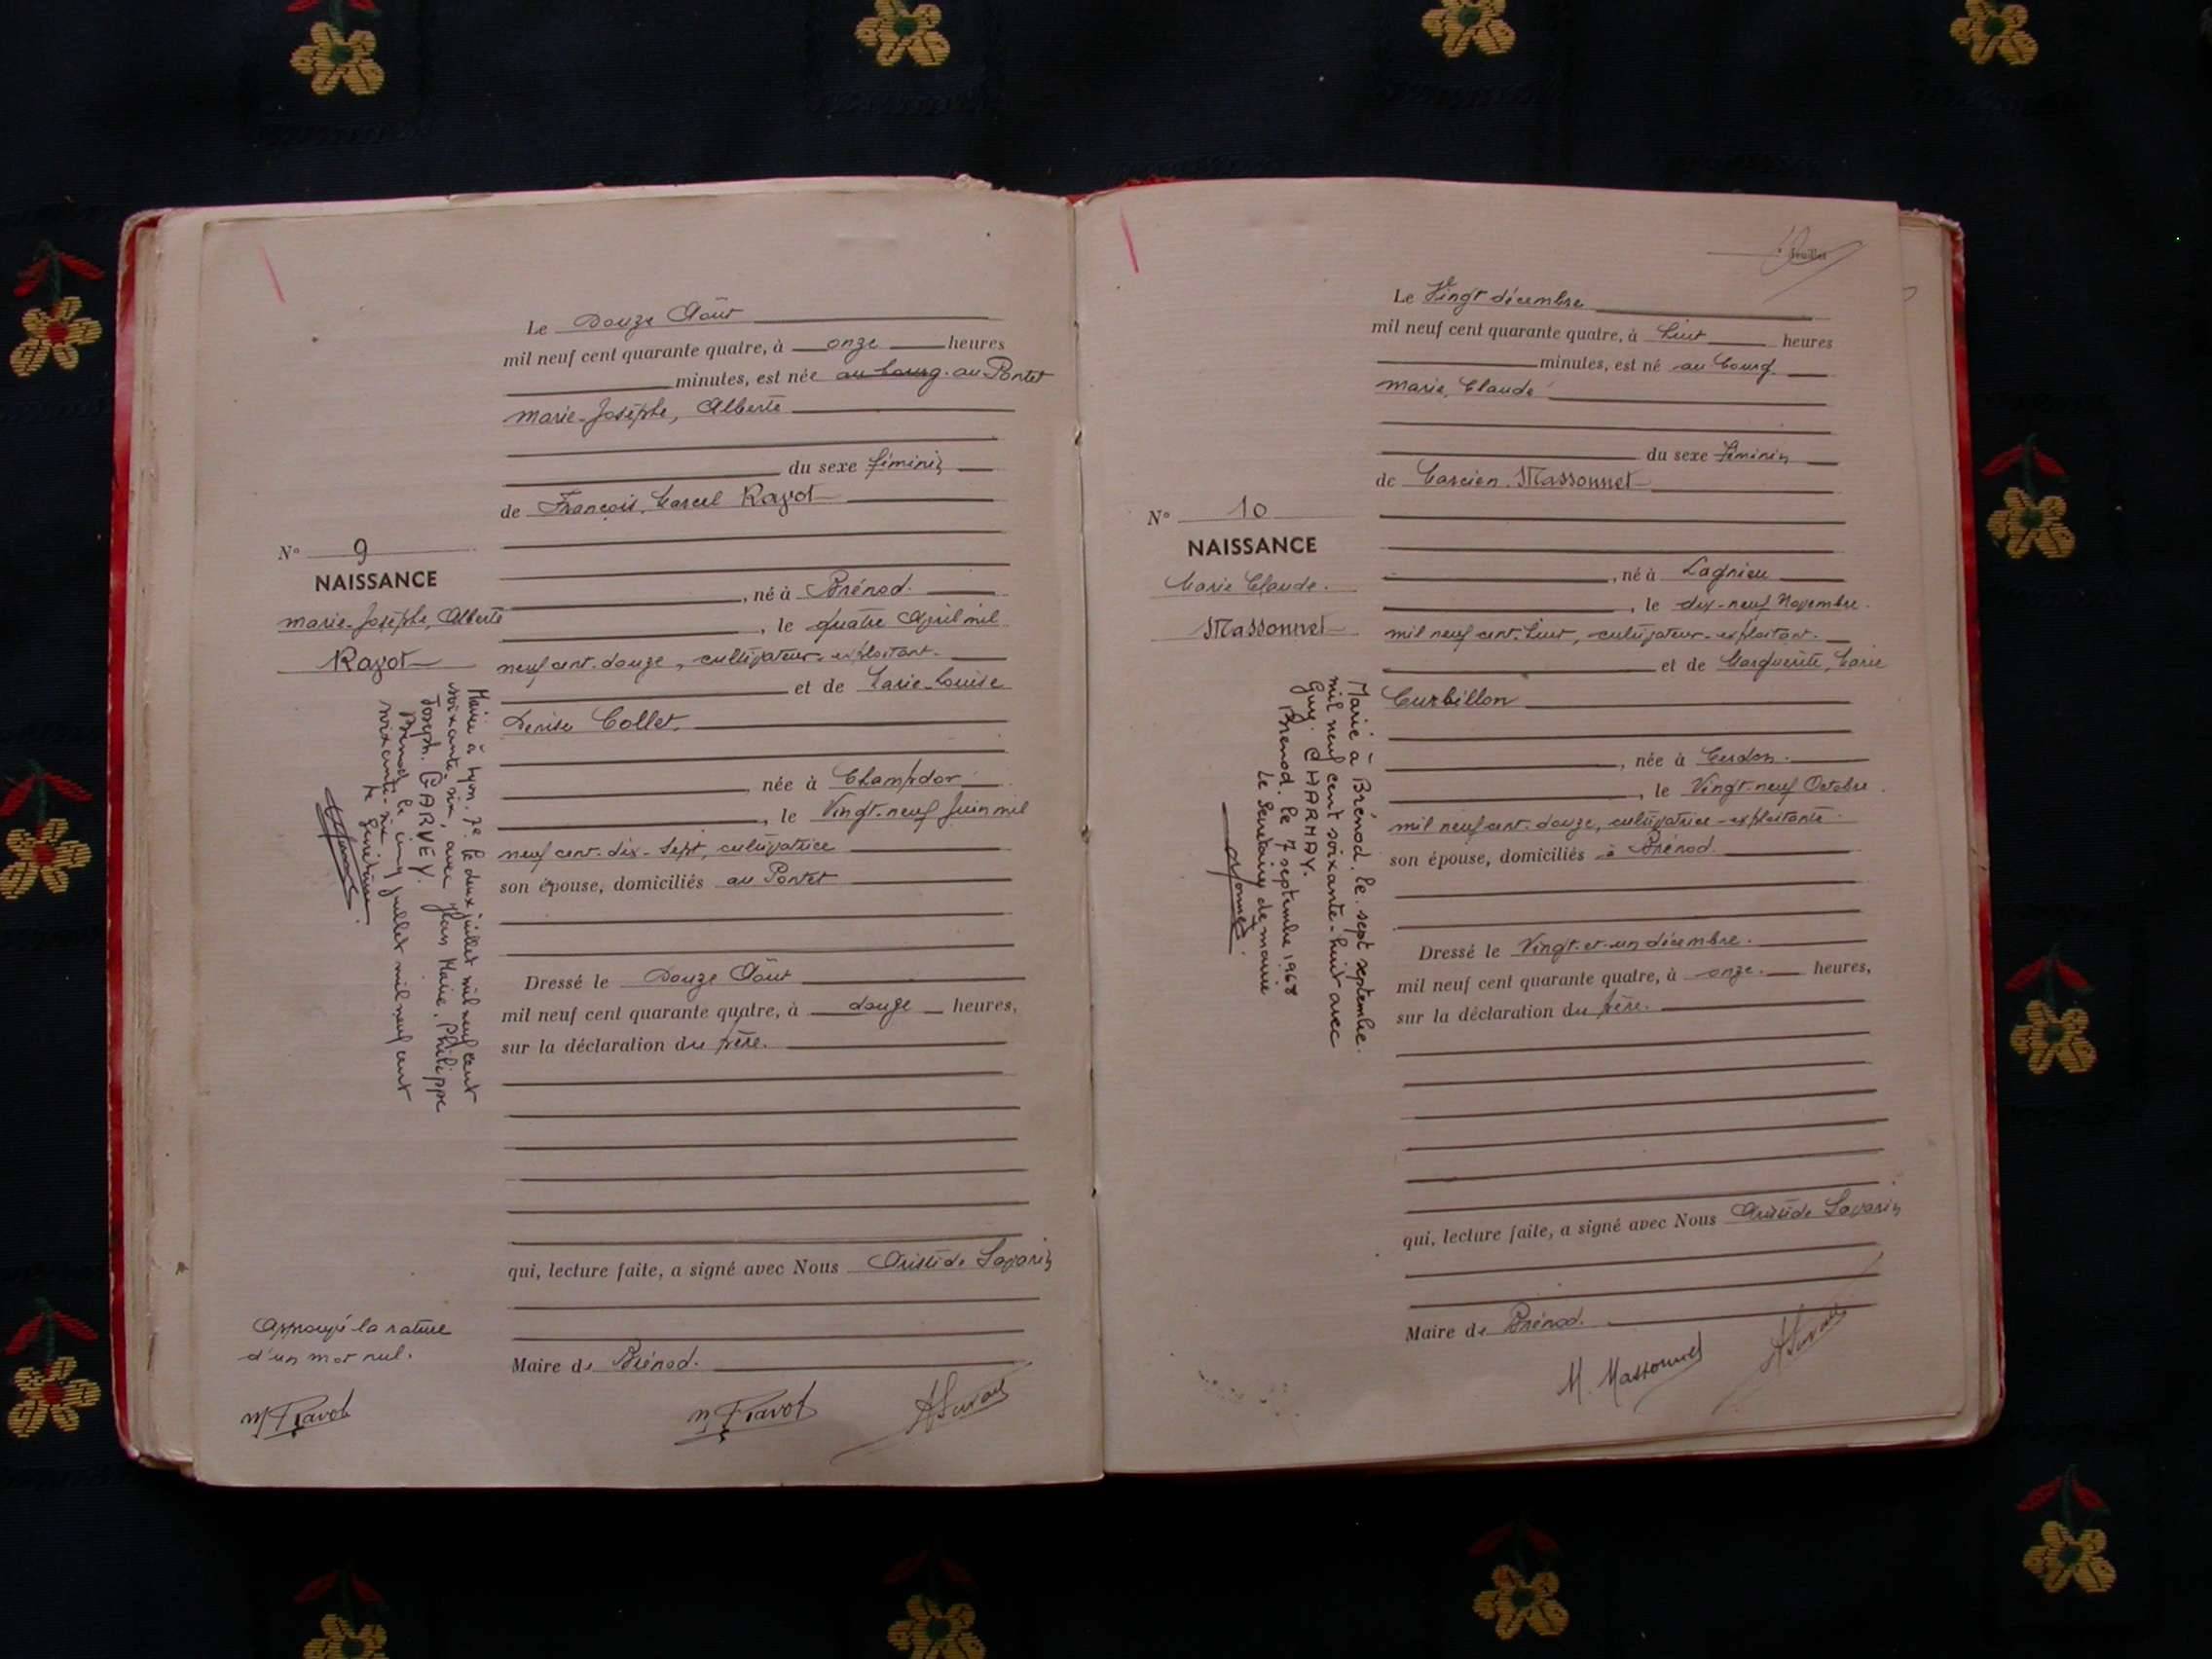 Le Douze Août
mil neuf cent quarante quatre, à onze heures
minutes, est née au bourg. au Pontet
Marie-Josèphe, Alberte
du sexe féminin
de François, Marcel Ravot
N° 9
NAISSANCE
Marie-Josèphe, Alberte
Ravot
, né à Brénod.
, le quatre Avril mil
neuf cent. douze, cultivateur-exploitant.
et de Marie-Louise
Denise Collet.
, née à Champdor
, le Vingt-neuf Juin mil
neuf cent. dix-sept, cultivatrice
son épouse, domiciliés au Pontet
Dressé le Douze Août
mil neuf cent quarante quatre, à douze heures,
sur la déclaration du père.
qui, lecture faite, a signé avec Nous Aristide Savarin
Maire de Brénod.
Mariée à Lyon. 7e le deux juillet mil neuf cent
soixante-six, avec Jean Marie, Philippe
Joseph. GARVEY.
Brénod le cinq juillet mil neuf cent
soixante-six
Le Secrétaire.
Approuvé la rature
d'un mot nul.
M Ravot
M Ravot
ASavarin
feuillet
Le Vingt décembre
mil neuf cent quarante quatre, à huit heures
minutes, est né au bourg.
Marie, Claude
du sexe féminin
de Marcien. Massonnet
N° 10
NAISSANCE
Marie Claude.
Massonnet
, né à Lagnieu
, le dix-neuf Novembre.
mil neuf cent. huit, cultivateur-exploitant.
et de Marguerite, Marie
Curbillon
, née à Cerdon.
, le Vingt-neuf Octobre.
mil neuf cent. douze, cultivatrice-exploitante.
son épouse, domiciliés à Brénod.
Dressé le Vingt-et-un décembre.
mil neuf cent quarante quatre, à onze. heures,
sur la déclaration du père.
qui, lecture faite, a signé avec Nous Aristide Savarin
Maire de Brénod.
Marié à Brénod. le. sept septembre.
mil neuf cent soixante-huit avec
Guy. CHARMAY.
Brénod. le 7 septembre 1968
le Secrétaire de mairie
M. Massonnet
ASavarin